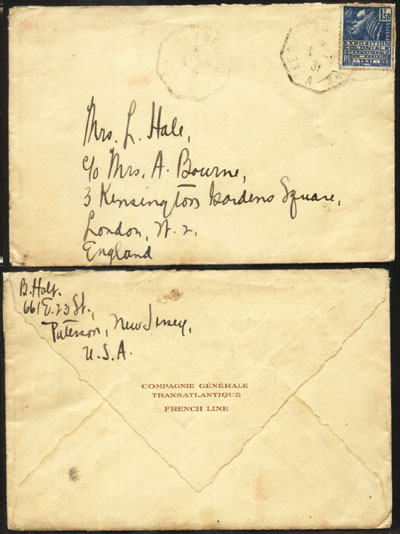 1F50
EXPOSITION
COLONIALE
INTERNATIONALE
PARIS 1931
LE HAVRE
31
A
Mrs. L. Hale,
c/o Mrs. A. Bourne,
3 Kensington Gardens Square,
London, W. 2,
England
B. Halt.
661 E. 23 St.,
Paterson, New Jersey,
U.S.A.
COMPAGNIE GÉNÉRALE
TRANSATLANTIQUE
FRENCH LINE